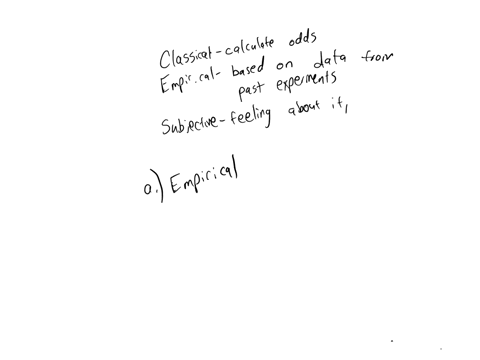 Classical-calculate odds
Empirical-based on data from
past experments
Subjective-feeling about it,
a.) Empirical